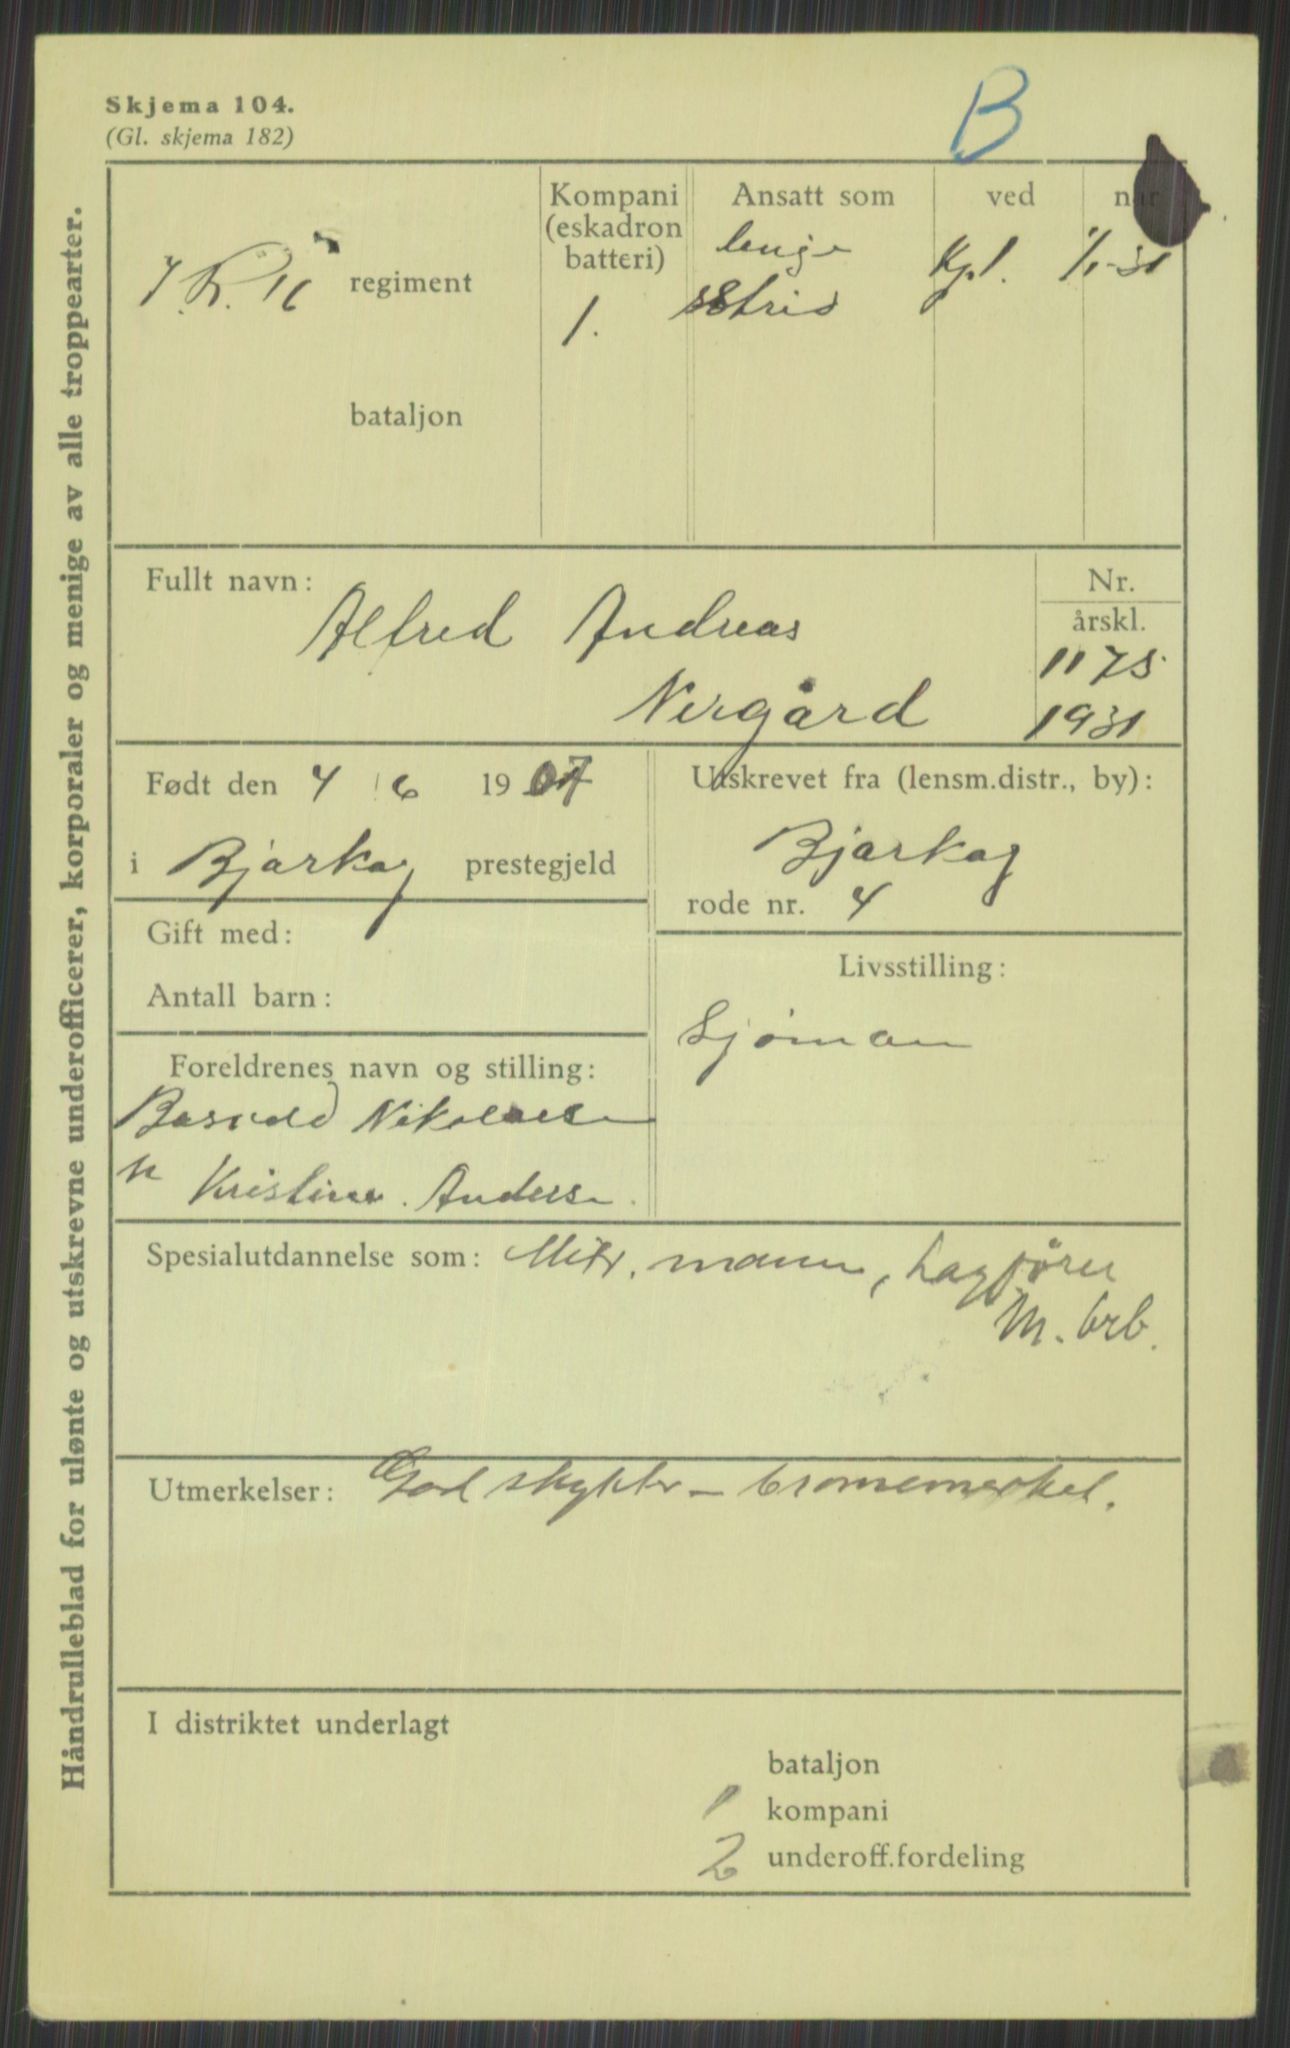 Skjema 104.
(Gl. skjema 182)
B
Håndrulleblad for ulønte og utskrevne underofficerer, korporaler og menige av alle troppearter.
I. R. 16 regiment
bataljon
Kompani
(eskadron
batteri)
1.
Ansatt som
ved
når
Kpl. 1/1-31
Fullt navn:
Alfred Andreas
Nergård
Nr.
årskl.
1175
1931
Født den 4 6 1907
i Bjarkøy prestegjeld
Utskrevet fra (lensm.distr., by):
Bjarkøy
rode nr. 4
Gift med:
Antall barn:
Livsstilling:
Sjøman
Foreldrenes navn og stilling:
Nikolaisen
Kristine Anders.
Spesialutdannelse som: Mitr. mann, Lagfører
M. brb.
Utmerkelser: God skytter - bronsemerket.
I distriktet underlagt
bataljon
1 kompani
2 underoff.fordeling